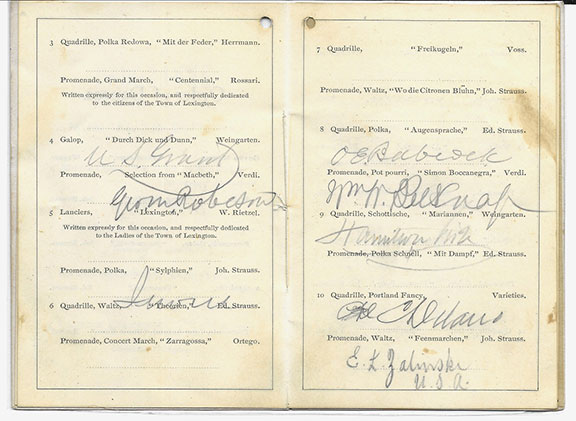 3 Quadrille, Polka Redowa, "Mit der Feder," Herrmann.
Promenade, Grand March, "Centennial," Rossari.
Written expressly for this occasion, and respectfully dedicated
to the citizens of the Town of Lexington.
4 Galop, "Durch Dick und Dunn," Weingarten.
U S. Grant
Promenade, Selection from "Macbeth," Verdi.
Geo m Robeson
5 Lanciers, "Lexington," W. Rietzel.
Written expressly for this occasion, and respectfully dedicated
to the Ladies of the Town of Lexington.
Promenade, Polka, "Sylphien," Joh. Strauss.
6 Quadrille, Waltz, Ed. Strauss.
Promenade, Concert March, "Zarragossa," Ortego.
7 Quadrille, "Freikugeln," Voss.
Promenade, Waltz, "Wo die Citronen Blühn," Joh. Strauss.
8 Quadrille, Polka, "Augensprache," Ed. Strauss.
O E Babcock
Promenade, Pot pourri, "Simon Boccanegra," Verdi.
Wm. W. Belknap
9 Quadrille, Schottische, "Mariannen," Weingarten.
Hamilton Fish
Promenade, Polka Schnell, "Mit Dampf," Ed. Strauss.
10 Quadrille, Portland Fancy, Varieties.
C Delano
Promenade, Waltz, "Feenmarchen," Joh. Strauss.
E. L. Zalinski
U.S.A.